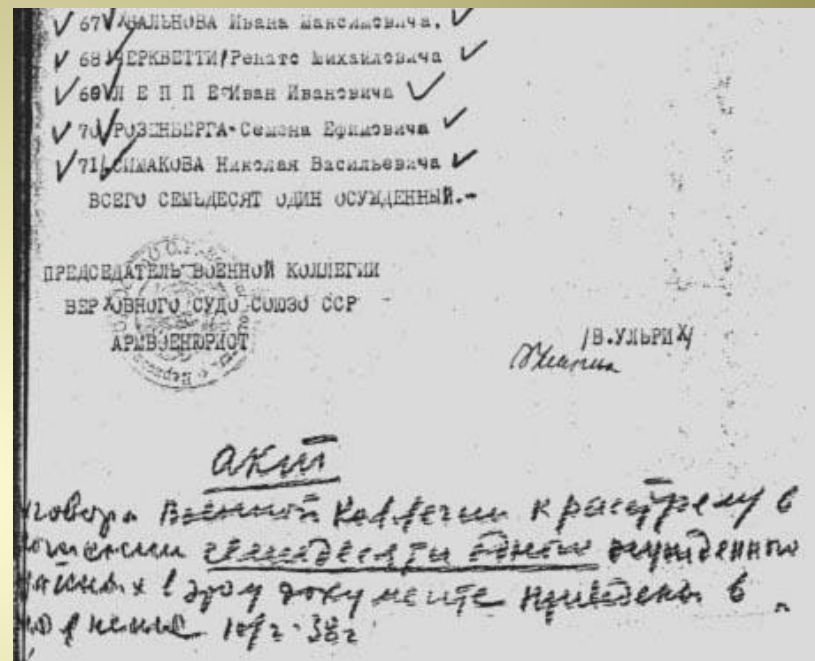 67 ВАЛЬНОВА Ивана Максимовича.
68 ЧЕРКВЕТТИ/Ренато Михайловича
69 Л Е П П Е Иван Ивановича
70 РОЗЕНБЕРГА-Семена Ефимовича
71 СИМАКОВА Николая Васильевича
ВСЕГО СЕМЬДЕСЯТ ОДИН ОСУЖДЕННЫЙ.-
ПРЕДСЕДАТЕЛЬ ВОЕННОЙ КОЛЛЕГИИ
ВЕРХОВНОГО СУДО СОЮЗО ССР
АРМВОЕНЮРИСТ
/В.УЛЬРИХ/
акт
говора Военной Коллегии к расстрелу в
ношении семидесяти одного осужденных
занных в этом документе приведены в
полнение 10/2-38г